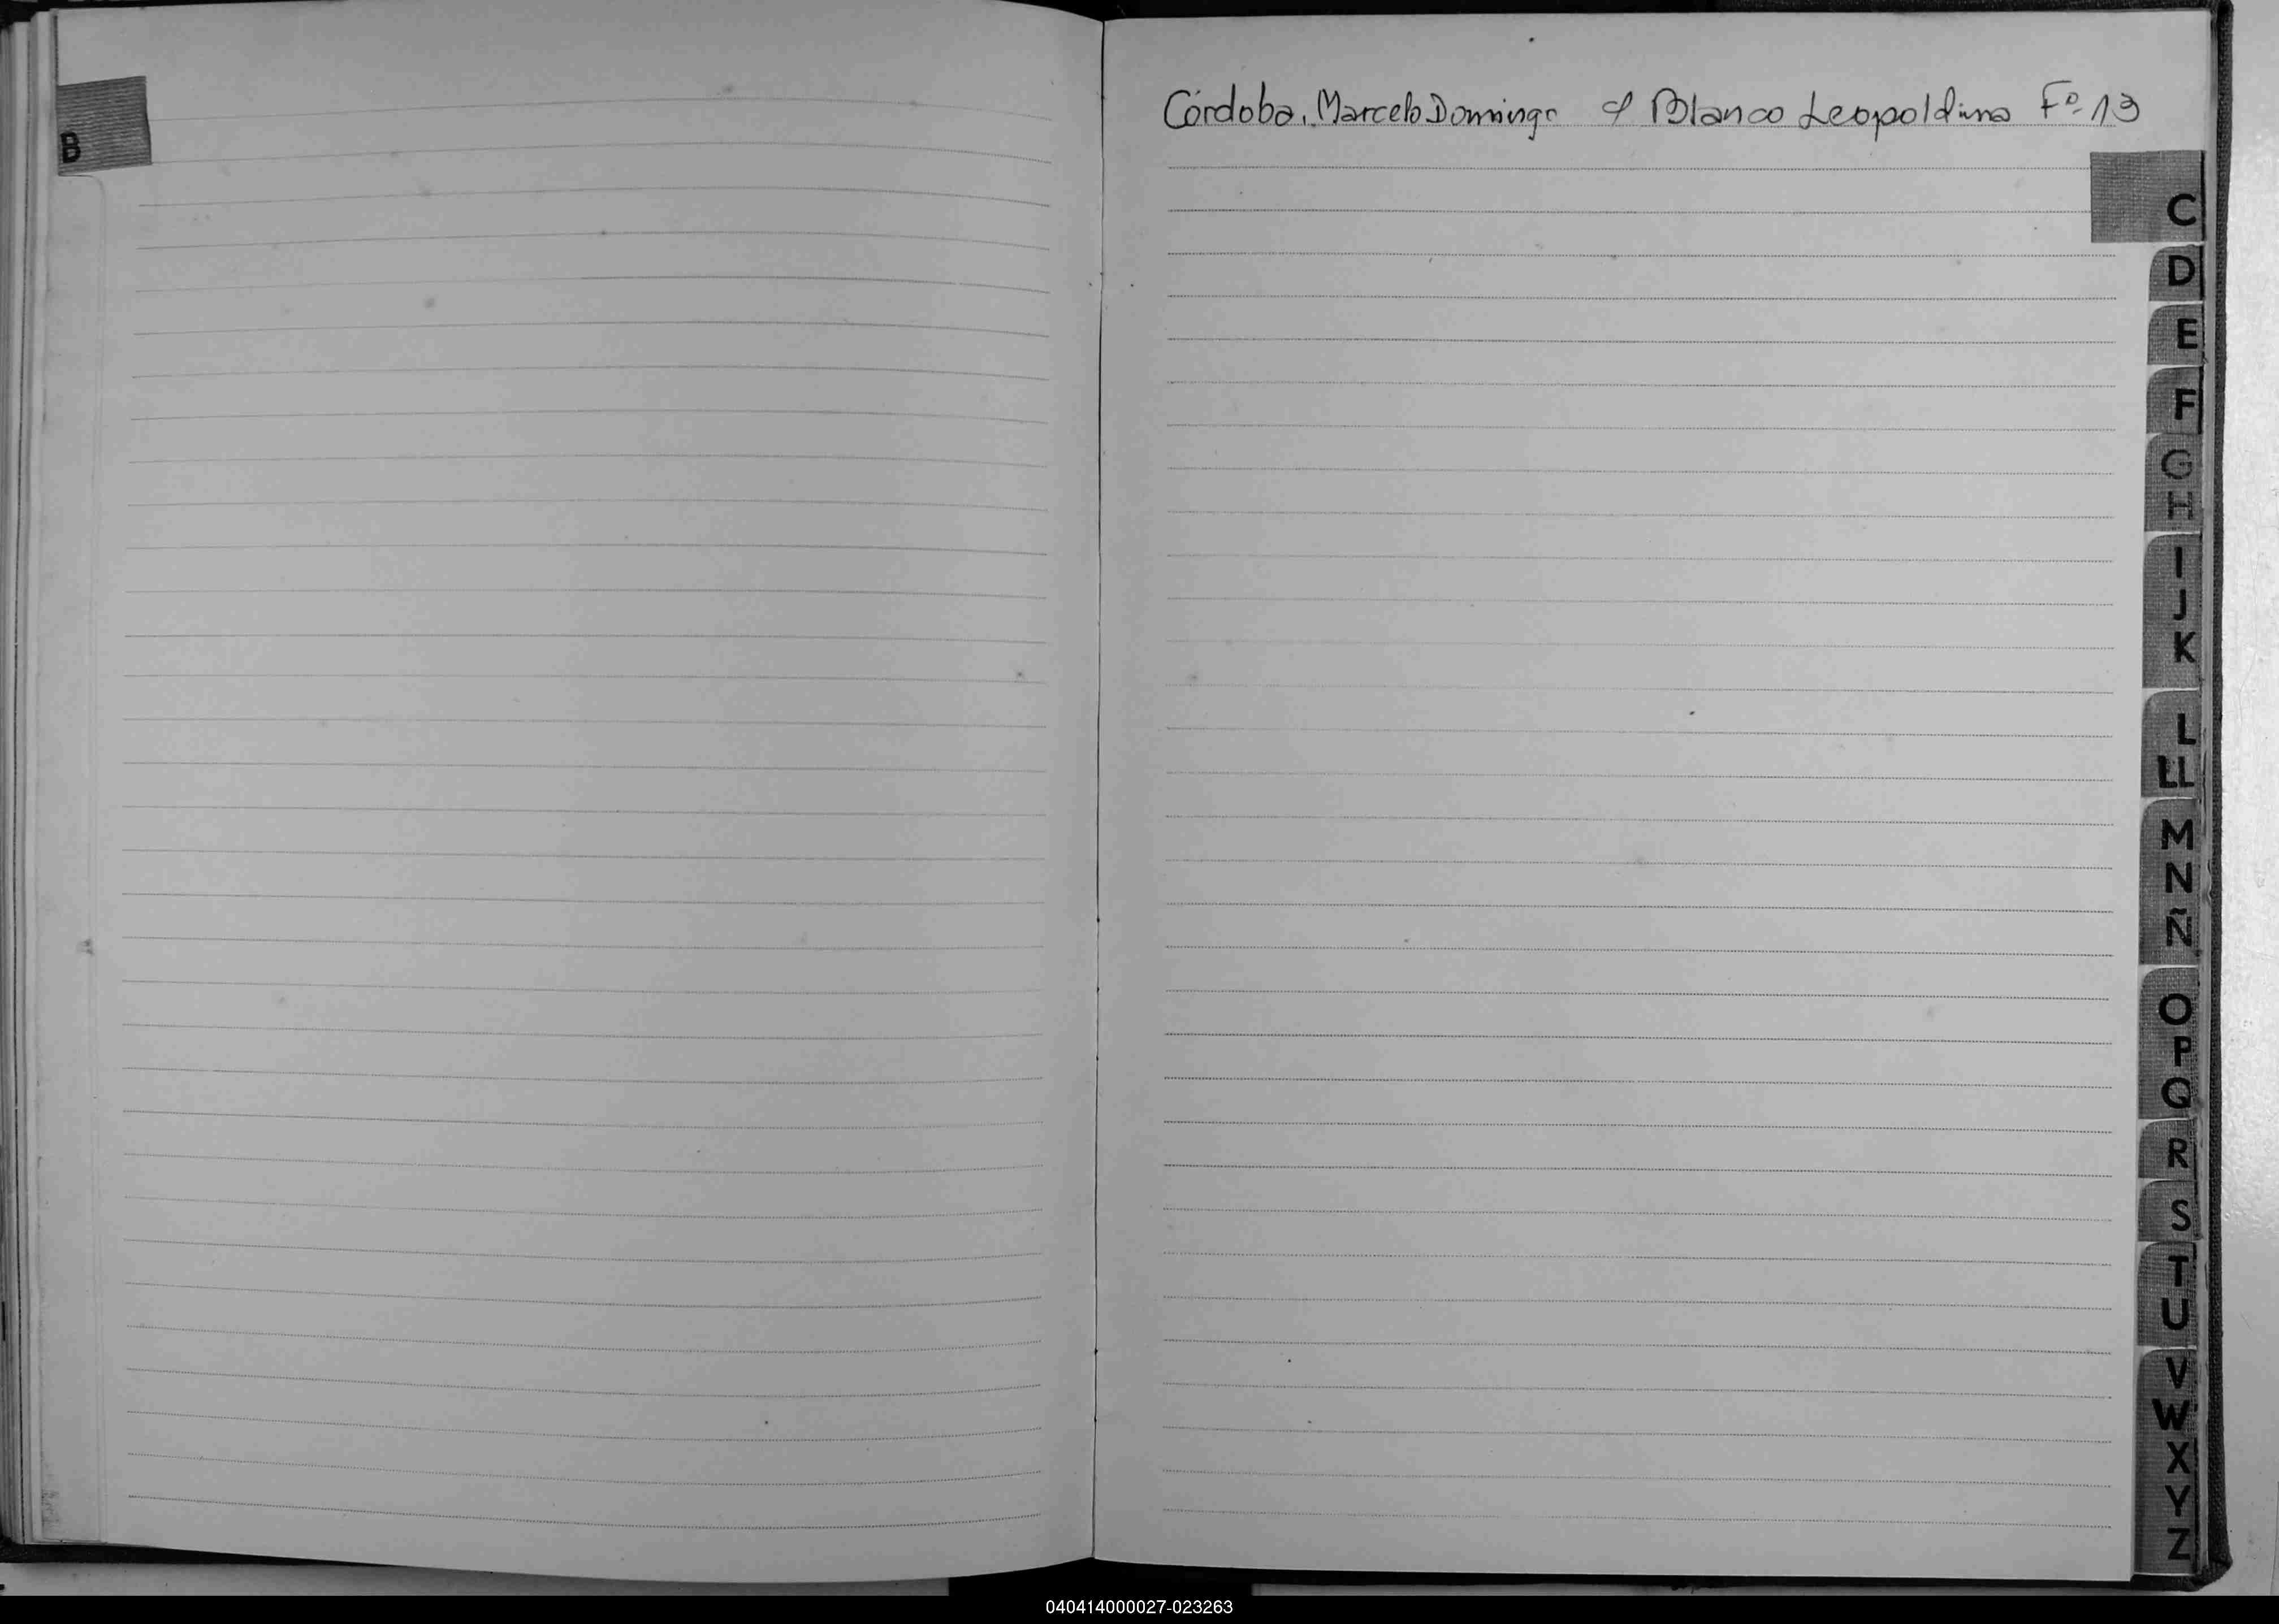 B
Córdoba, Marcelo Domingo c/ Blanco Leopoldina Fº 13
C
D
E
F
G
H
I
J
K
L
LL
M
N
Ñ
O
P
Q
R
S
T
U
V
W
X
Y
Z
040414000027-023263